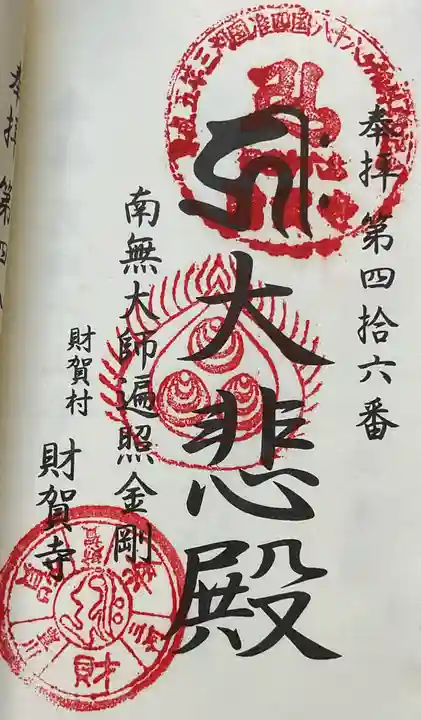 奉拝 第四拾六番
大悲殿
南無大師遍照金剛
財賀村
財賀寺
奉拝 第四
財